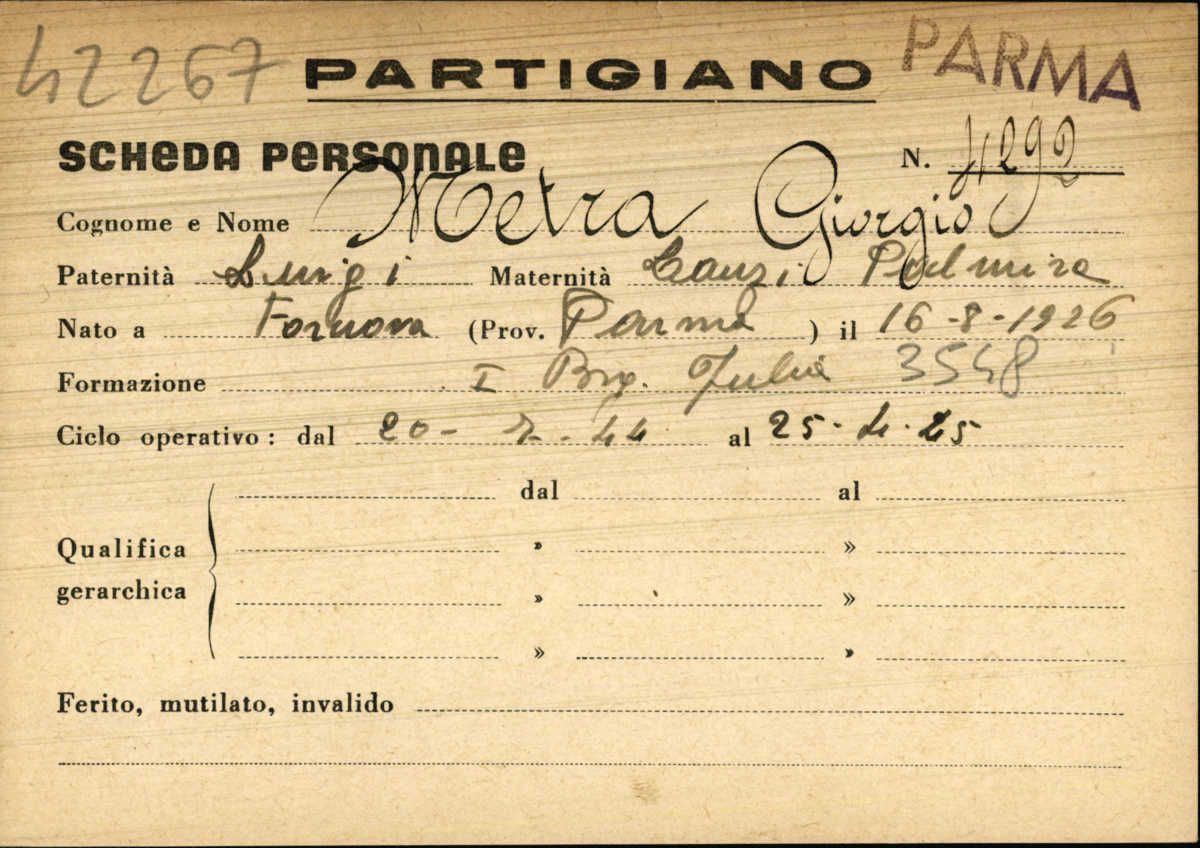 42267 PARTIGIANO PARMA
SCHEDA PERSONALE N. 4292
Cognome e Nome Metra Giorgio
Paternità Luigi Maternità Palmira
Nato a Fornova (Prov. Parma ) il 16-8-1926
Formazione I Brg. Julia 3548
Ciclo operativo: dal 20-7-44 al 25-4-45
dal al
Qualifica » »
gerarchica » »
» »
Ferito, mutilato, invalido